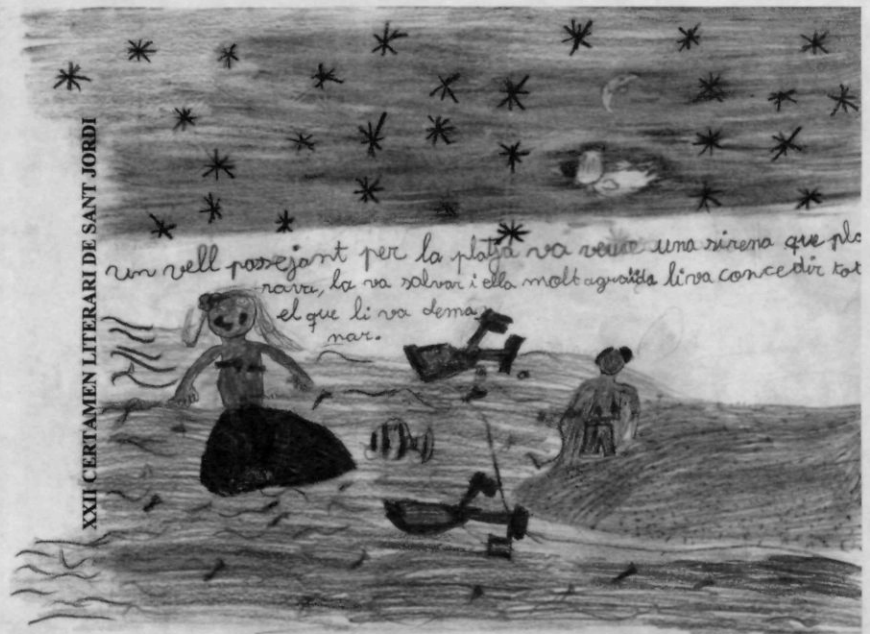 XXII CERTAMEN LITERARI DE SANT JORDI
un vell passejant per la platja va veure una sirena que plo
rava, la va salvar i ella molt agraïda li va concedir tot
el que li va dema
nar.